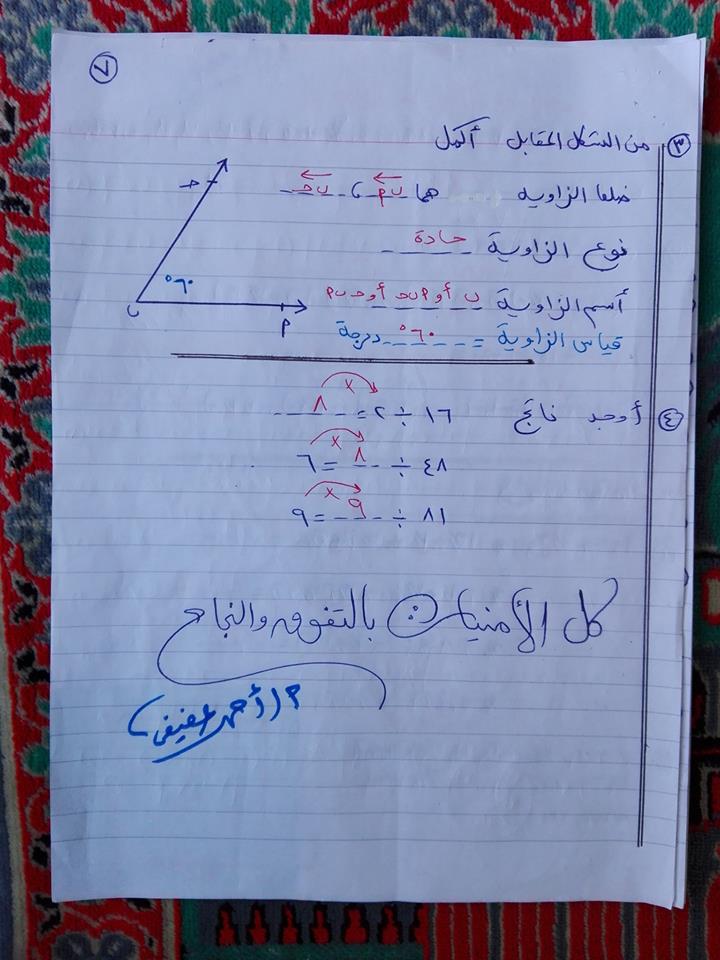 ٧
٣ من الشكل المقابل أكمل
ضلعا الزاوية هما ب م ، ب ح
نوع الزاوية حادة
أسم الزاوية ب أو م ب ح أو ح ب م
قياس الزاوية = ٦٠° درجة
ح
٦٠°
ب
م
٤ أوجد ناتج ١٦ ÷ ٢ = ٨
×
٤٨ ÷ ٨ = ٦
×
٨١ ÷ ٩ = ٩
×
كل الأمنيات بالتفوق والنجاح
م / أحمد عفيفى